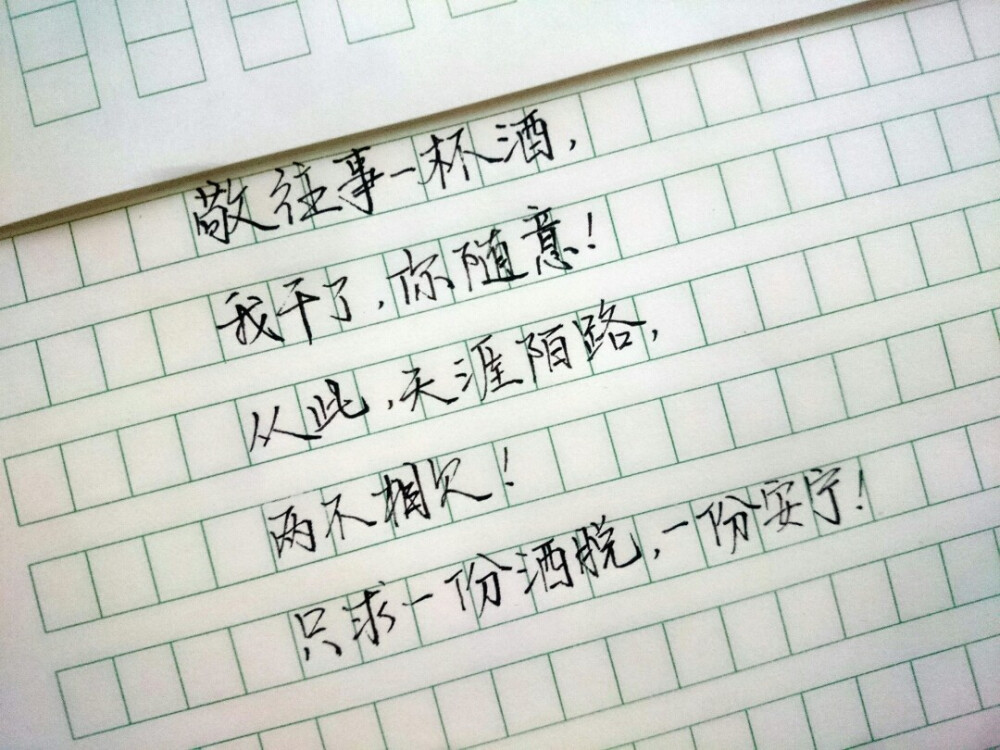 敬往事一杯酒,
我干了,你随意!
从此,天涯陌路,
两不相欠!
只求一份洒脱,一份安宁!